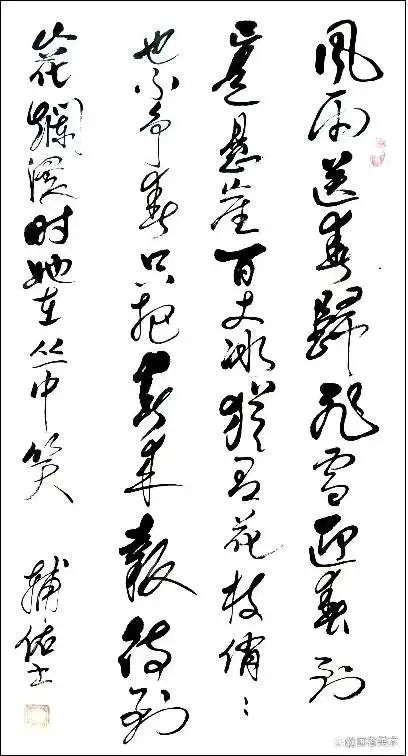 風雨送春歸飛雪迎春到
已是悬崖百丈冰猶有花枝俏ミ
也不争春只把春来報待到
山花爛漫时她在丛中笑
佑书